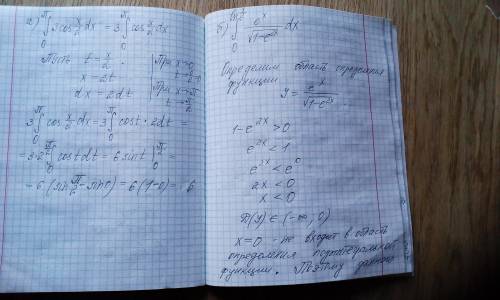 а) ∫₀^π 3cos x/2 dx = 3∫₀^π cos x/2 dx
Пусть t = x/2. | При x→0
x = 2t | t→0
dx = 2dt | При x→π
t→π/2
3∫₀^π cos x/2 dx = 3∫₀ cos t · 2dt =
= 3·2∫₀ cos t dt = 6 sin t |₀ =
= 6(sin π/2 − sin 0) = 6(1−0) = 6
б) ∫₀ eˣ/√(1−e²ˣ) dx
Определим область определения
функции
y = eˣ/√(1−e²ˣ).
1−e²ˣ > 0
e²ˣ < 1
e²ˣ < e⁰
2x < 0
x < 0
D(y) ∈ (−∞; 0)
x=0 - не входит в область
определения подынтегральной
функции. Поэтому данного